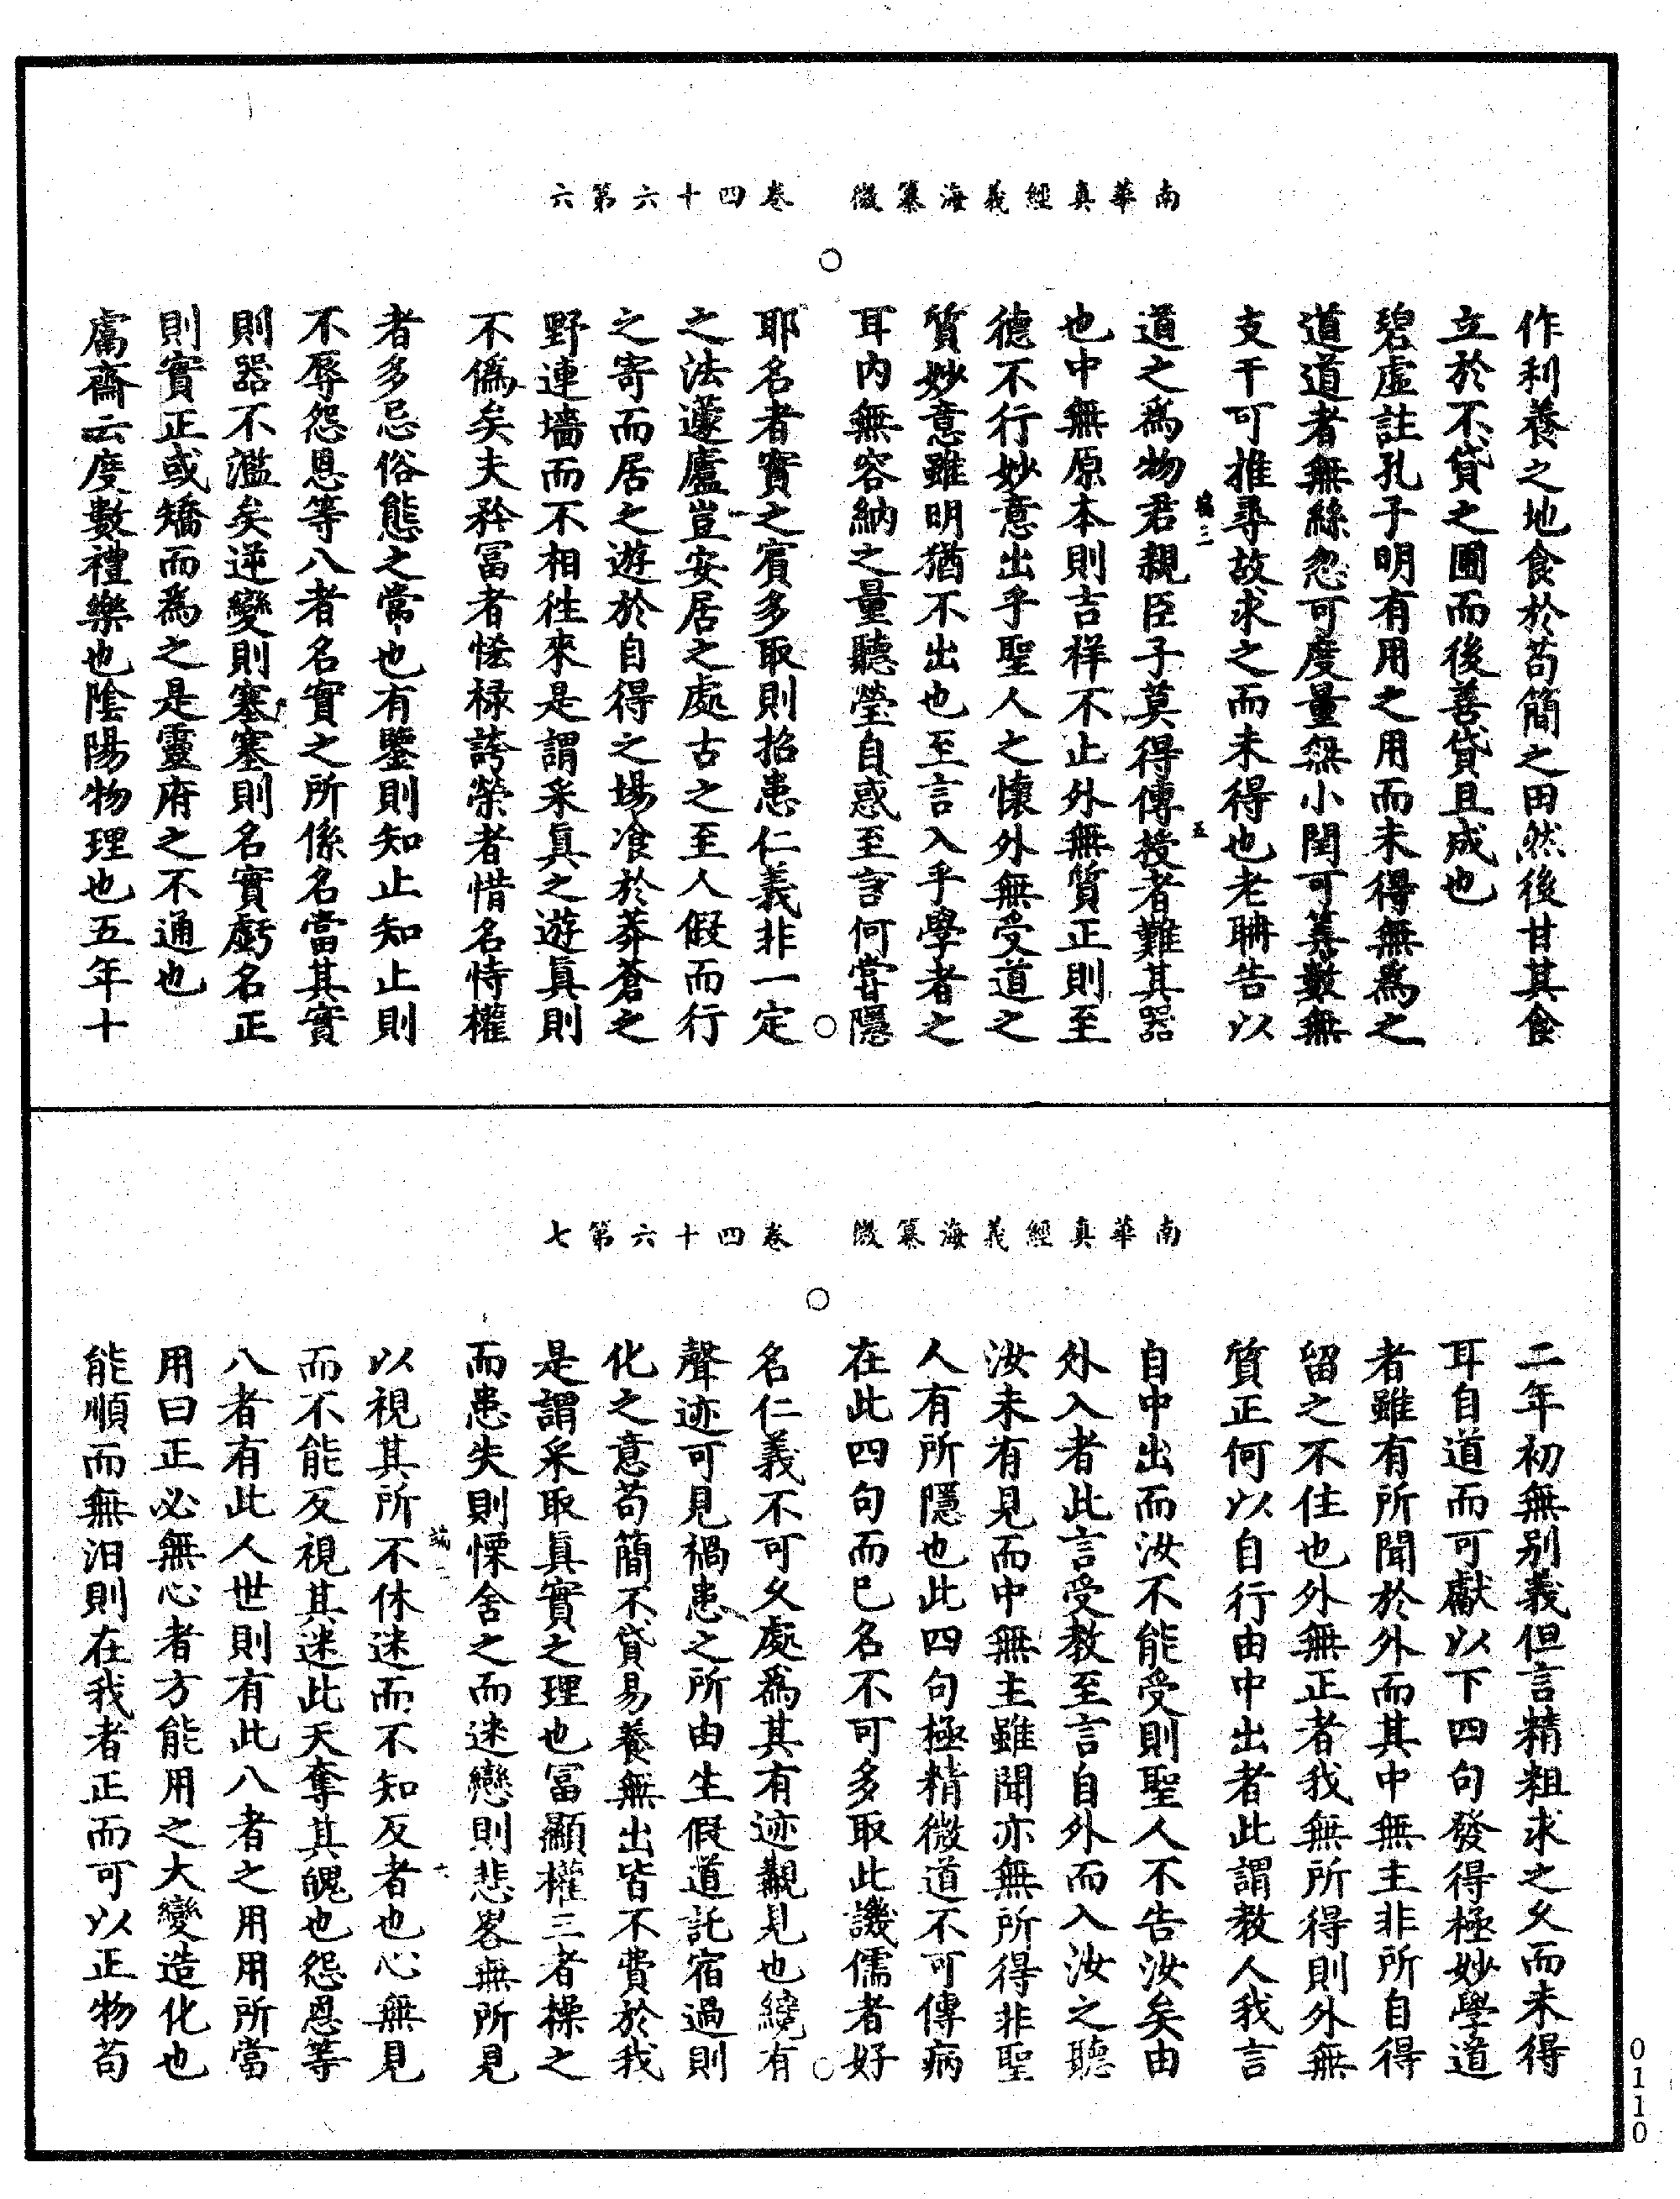 南華真經義海纂微　卷四十六第六
作利養之地食於苟簡之田然後甘其食
立於不貸之圃而後善貸且成也
碧虛註孔子明有用之用而未得無為之
道道者無絲忽可度量無小閏可筭數無
支干可推尋故求之而未得也老聃告以
道之為物君親臣子莫得傳授者難其器
也中無原本則吉祥不止外無質正則至
德不行妙意出乎聖人之懷外無受道之
質妙意雖明猶不出也至言入乎學者之
耳內無容納之量聽瑩自惑至言何嘗隱
耶名者實之賓多取則招患仁義非一定
之法蘧廬豈安居之處古之至人假而行
之寄而居之遊於自得之場飡於莽蒼之
野連墻而不相往來是謂采真之遊真則
不偽矣夫矜富者恡祿誇榮者惜名恃權
者多忌俗態之常也有鑒則知止知止則
不辱怨恩等八者名實之所係名當其實
則器不濫矣逆變則塞塞則名實虧名正
則實正或矯而為之是靈府之不通也
鬳齋云度數禮樂也陰陽物理也五年十
南華真經義海纂微　卷四十六第七
二年初無別義但言精粗求之久而未得
耳自道而可獻以下四句發得極妙學道
者雖有所聞於外而其中無主非所自得
留之不住也外無正者我無所得則外無
質正何以自行由中出者此謂教人我言
自中出而汝不能受則聖人不告汝矣由
外入者此言受教至言自外而入汝之聽
汝未有見而中無主雖聞亦無所得非聖
人有所隱也此四句極精微道不可傳病
在此四句而已名不可多取此譏儒者好
名仁義不可久處為其有迹覯見也纔有
聲迹可見禍患之所由生假道託宿過則
化之意苟簡不貸易養無出皆不費於我
是謂采取真實之理也富顯權三者操之
而患失則慄舍之而迷戀則悲畧無所見
以視其所不休迷而不知反者也心無見
而不能反視其迷此天奪其魄也怨恩等
八者有此人世則有此八者之用用所當
用曰正必無心者方能用之大變造化也
能順而無汨則在我者正而可以正物苟
0110